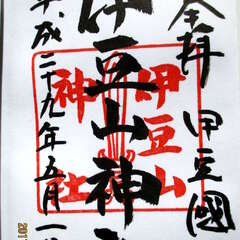 奉拝 伊豆國
伊豆山神
伊豆山
神社
平成二十九年五月一
201